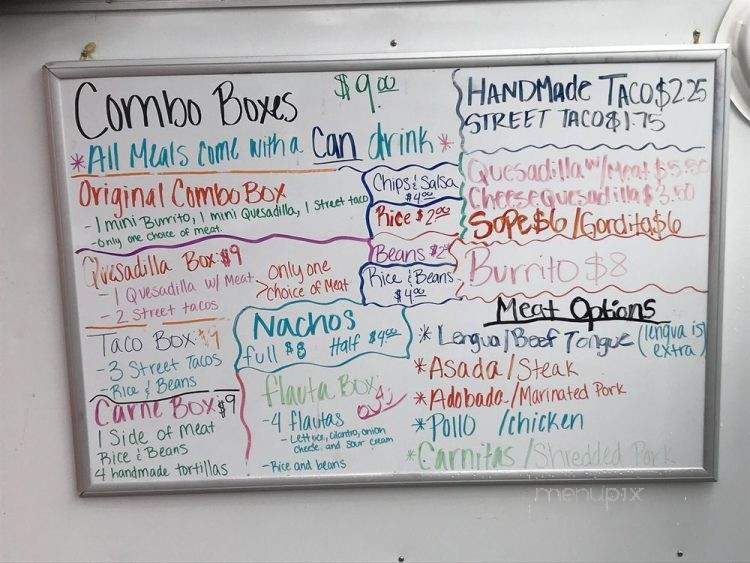 Combo Boxes $9.00
*All Meals come with a Can drink*
Original Combo Box
- 1 mini Burrito, 1 mini Quesadilla, 1 Street taco
- Only one choice of meat.
Quesadilla Box $9
- 1 Quesadilla w/ Meat
- 2 Street tacos
> only one choice of Meat
Taco Box $9
- 3 Street Tacos
- Rice & Beans
Carne Box $9
1 Side of Meat
Rice & Beans
4 handmade tortillas
Chips & Salsa
$4.00
Rice $2.00
Beans
Rice & Beans
$4.00
Nachos
full $8 Half $4.00
flauta Box
- 4 flautas
- Lettuce, cilantro, onion
cheese and sour cream
- Rice and beans
HANDMade Taco $2.25
STREET TACO $1.75
Quesadilla w/ Meat $5.50
Cheese Quesadilla $3.50
Sope $6 / Gordita $6
Burrito $8
Meat Options
* Lengua / Beef Tongue (lengua is extra)
* Asada / Steak
* Adobada / Marinated Pork
* Pollo / chicken
* Carnitas / Shredded Pork
menupix